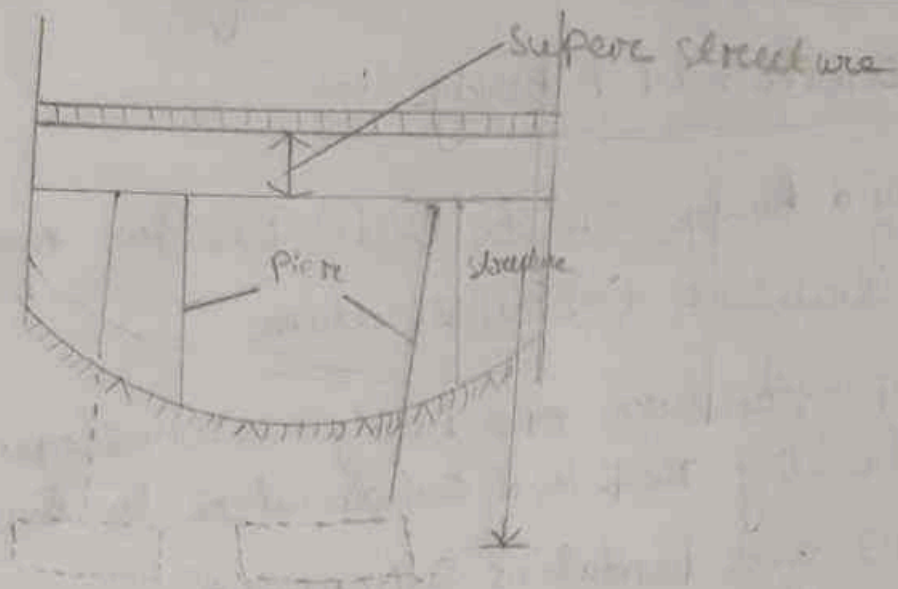 Superc structure
Piere
structure